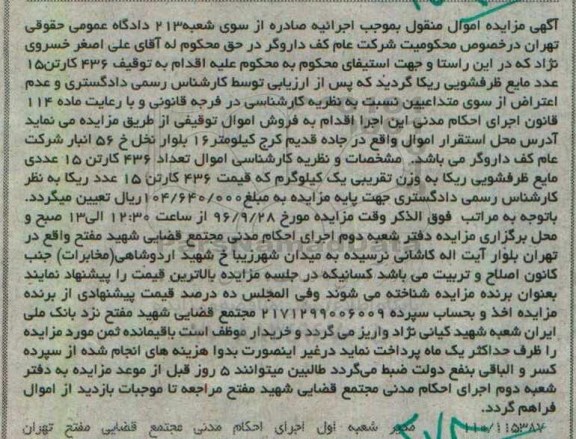 آگهی مزایده اموال منقول بموجب اجرائیه صادره از سوی شعبه۲۱۳ دادگاه عمومی حقوقی
تهران درخصوص محکومیت شرکت عام کف داروگر در حق محکوم له آقای علی اصغر خسروی
نژاد که در این راستا و جهت استیفای محکوم به محکوم علیه اقدام به توقیف ۴۳۶ کارتن۱۵
عدد مایع ظرفشویی ریکا گردید که پس از ارزیابی توسط کارشناس رسمی دادگستری و عدم
اعتراض از سوی متداعیین نسبت به نظریه کارشناسی در فرجه قانونی و با رعایت ماده ۱۱۴
قانون اجرای احکام مدنی این اجرا اقدام به فروش اموال توقیفی از طریق مزایده می نماید
آدرس محل استقرار اموال واقع در جاده قدیم کرج کیلومتر۱۶ بلوار نخل خ ۵۶ انبار شرکت
عام کف داروگر می باشد. مشخصات و نظریه کارشناسی اموال تعداد ۴۳۶ کارتن ۱۵ عددی
مایع ظرفشویی ریکا به وزن تقریبی یک کیلوگرم که قیمت ۴۳۶ کارتن ۱۵ عدد ریکا به نظر
کارشناس رسمی دادگستری جهت پایه مزایده به مبلغ۱۰۴/۶۴۰/۰۰۰ریال تعیین میگردد.
باتوجه به مراتب فوق الذکر وقت مزایده مورخ ۹۶/۹/۲۸ از ساعت ۱۲:۳۰ الی۱۳ صبح و
محل برگزاری مزایده دفتر شعبه دوم اجرای احکام مدنی مجتمع قضایی شهید مفتح واقع در
تهران بلوار آیت اله کاشانی نرسیده به میدان شهرزیبا خ شهید اردوشاهی(مخابرات) جنب
کانون اصلاح و تربیت می باشد کسانیکه در جلسه مزایده بالاترین قیمت را پیشنهاد نمایند
بعنوان برنده مزایده شناخته می شوند وفی المجلس ده درصد قیمت پیشنهادی از برنده
مزایده اخذ و بحساب سپرده ۲۱۷۱۲۹۹۰۰۶۰۰۹ مجتمع قضایی شهید مفتح نزد بانک ملی
ایران شعبه شهید کیانی نژاد واریز می گردد و خریدار موظف است باقیمانده ثمن مورد مزایده
را ظرف حداکثر یک ماه پرداخت نماید درغیر اینصورت بدوا هزینه های انجام شده از سپرده
کسر و الباقی بنفع دولت ضبط می‌گردد طالبین میتوانند ۵ روز قبل از موعد مزایده به دفتر
شعبه دوم اجرای احکام مدنی مجتمع قضایی شهید مفتح مراجعه تا موجبات بازدید از اموال
فراهم گردد.
۱۱۰/۱۱۵۳۸۷ مدیر شعبه اول اجرای احکام مدنی مجتمع قضایی مفتح تهران